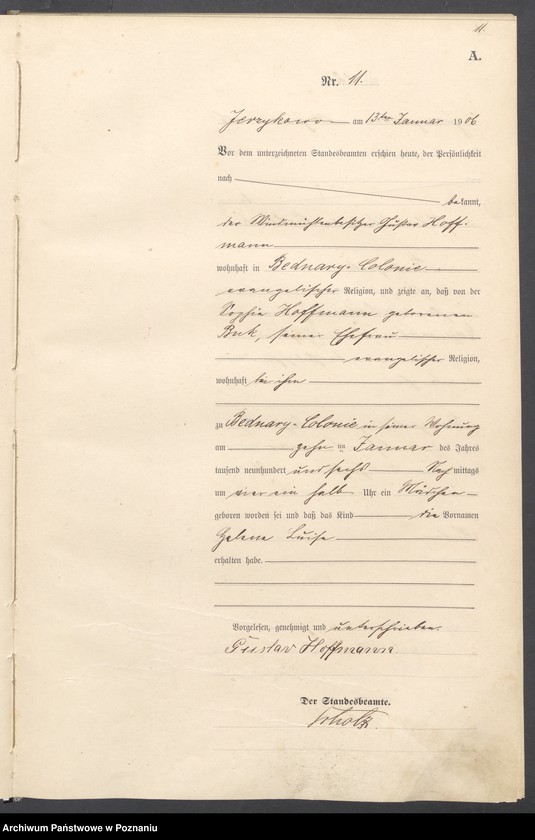 11.
A.
Nr. 11.
Jerzykowo am 13ten Januar 1906
Vor dem unterzeichneten Standesbeamten erschien heute, der Persönlichkeit
nach
bekannt,
der Windmühlenbesitzer Gustav Hoff-
mann
wohnhaft in Bednary-Colonie
evangelischer Religion, und zeigte an, daß von der
Sophie Hoffmann geborenen
Buk, seiner Ehefrau
evangelischer Religion,
wohnhaft bei ihm
zu Bednary-Colonie in seiner Wohnung
am zehn ten Januar des Jahres
tausend neunhundert und sechs Nachmittags
um vier ein halb Uhr ein Mädchen
geboren worden sei und daß das Kind die Vornamen
Helene Luise
erhalten habe.
Vorgelesen, genehmigt und unterschrieben.
Gustav Hoffmann
Der Standesbeamte.
Archiwum Państwowe w Poznaniu